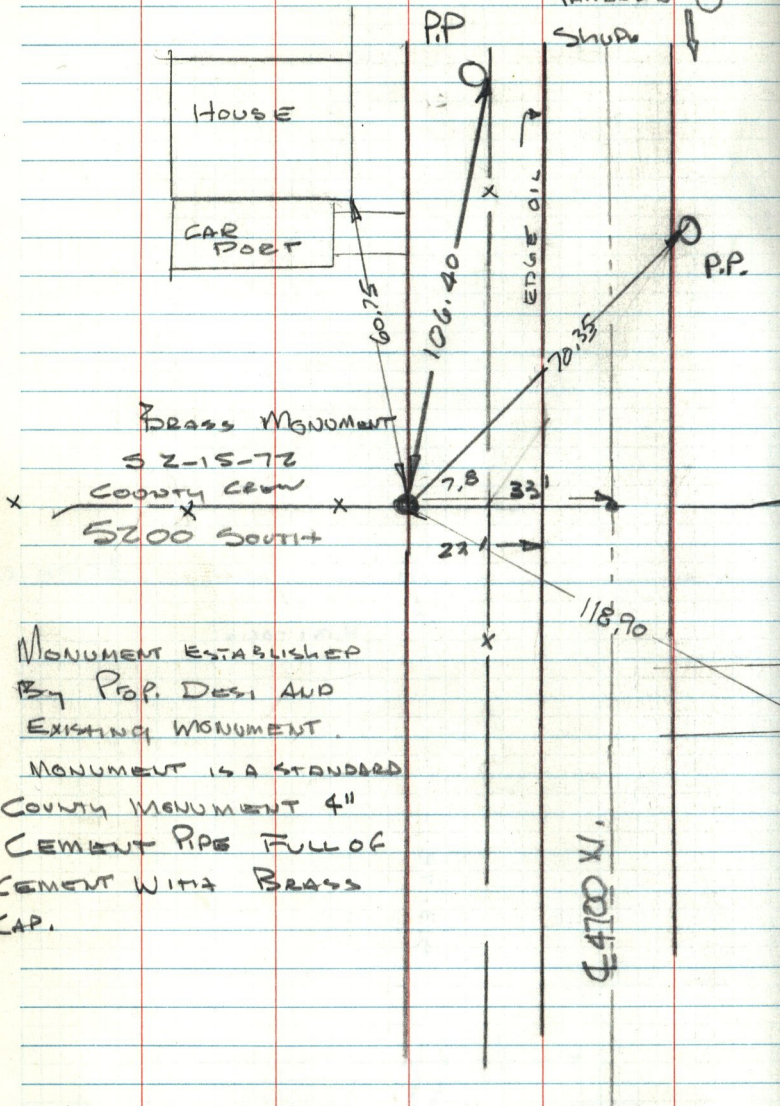 P.P
SHOP
HOUSE
CAR
PORT
EDGE OIL
P.P.
60.75
106.40
70.35
BRASS MONUMENT
S 2-15-72
COUNTY CREW
7.8
33'
5200 SOUTH
22'
118.90
MONUMENT ESTABLISHED
BY PROP. DESI AND
EXISTING MONUMENT.
MONUMENT IS A STANDARD
COUNTY MONUMENT 4"
CEMENT PIPE FULL OF
CEMENT WITH BRASS
CAP.
℄ 4700 W.